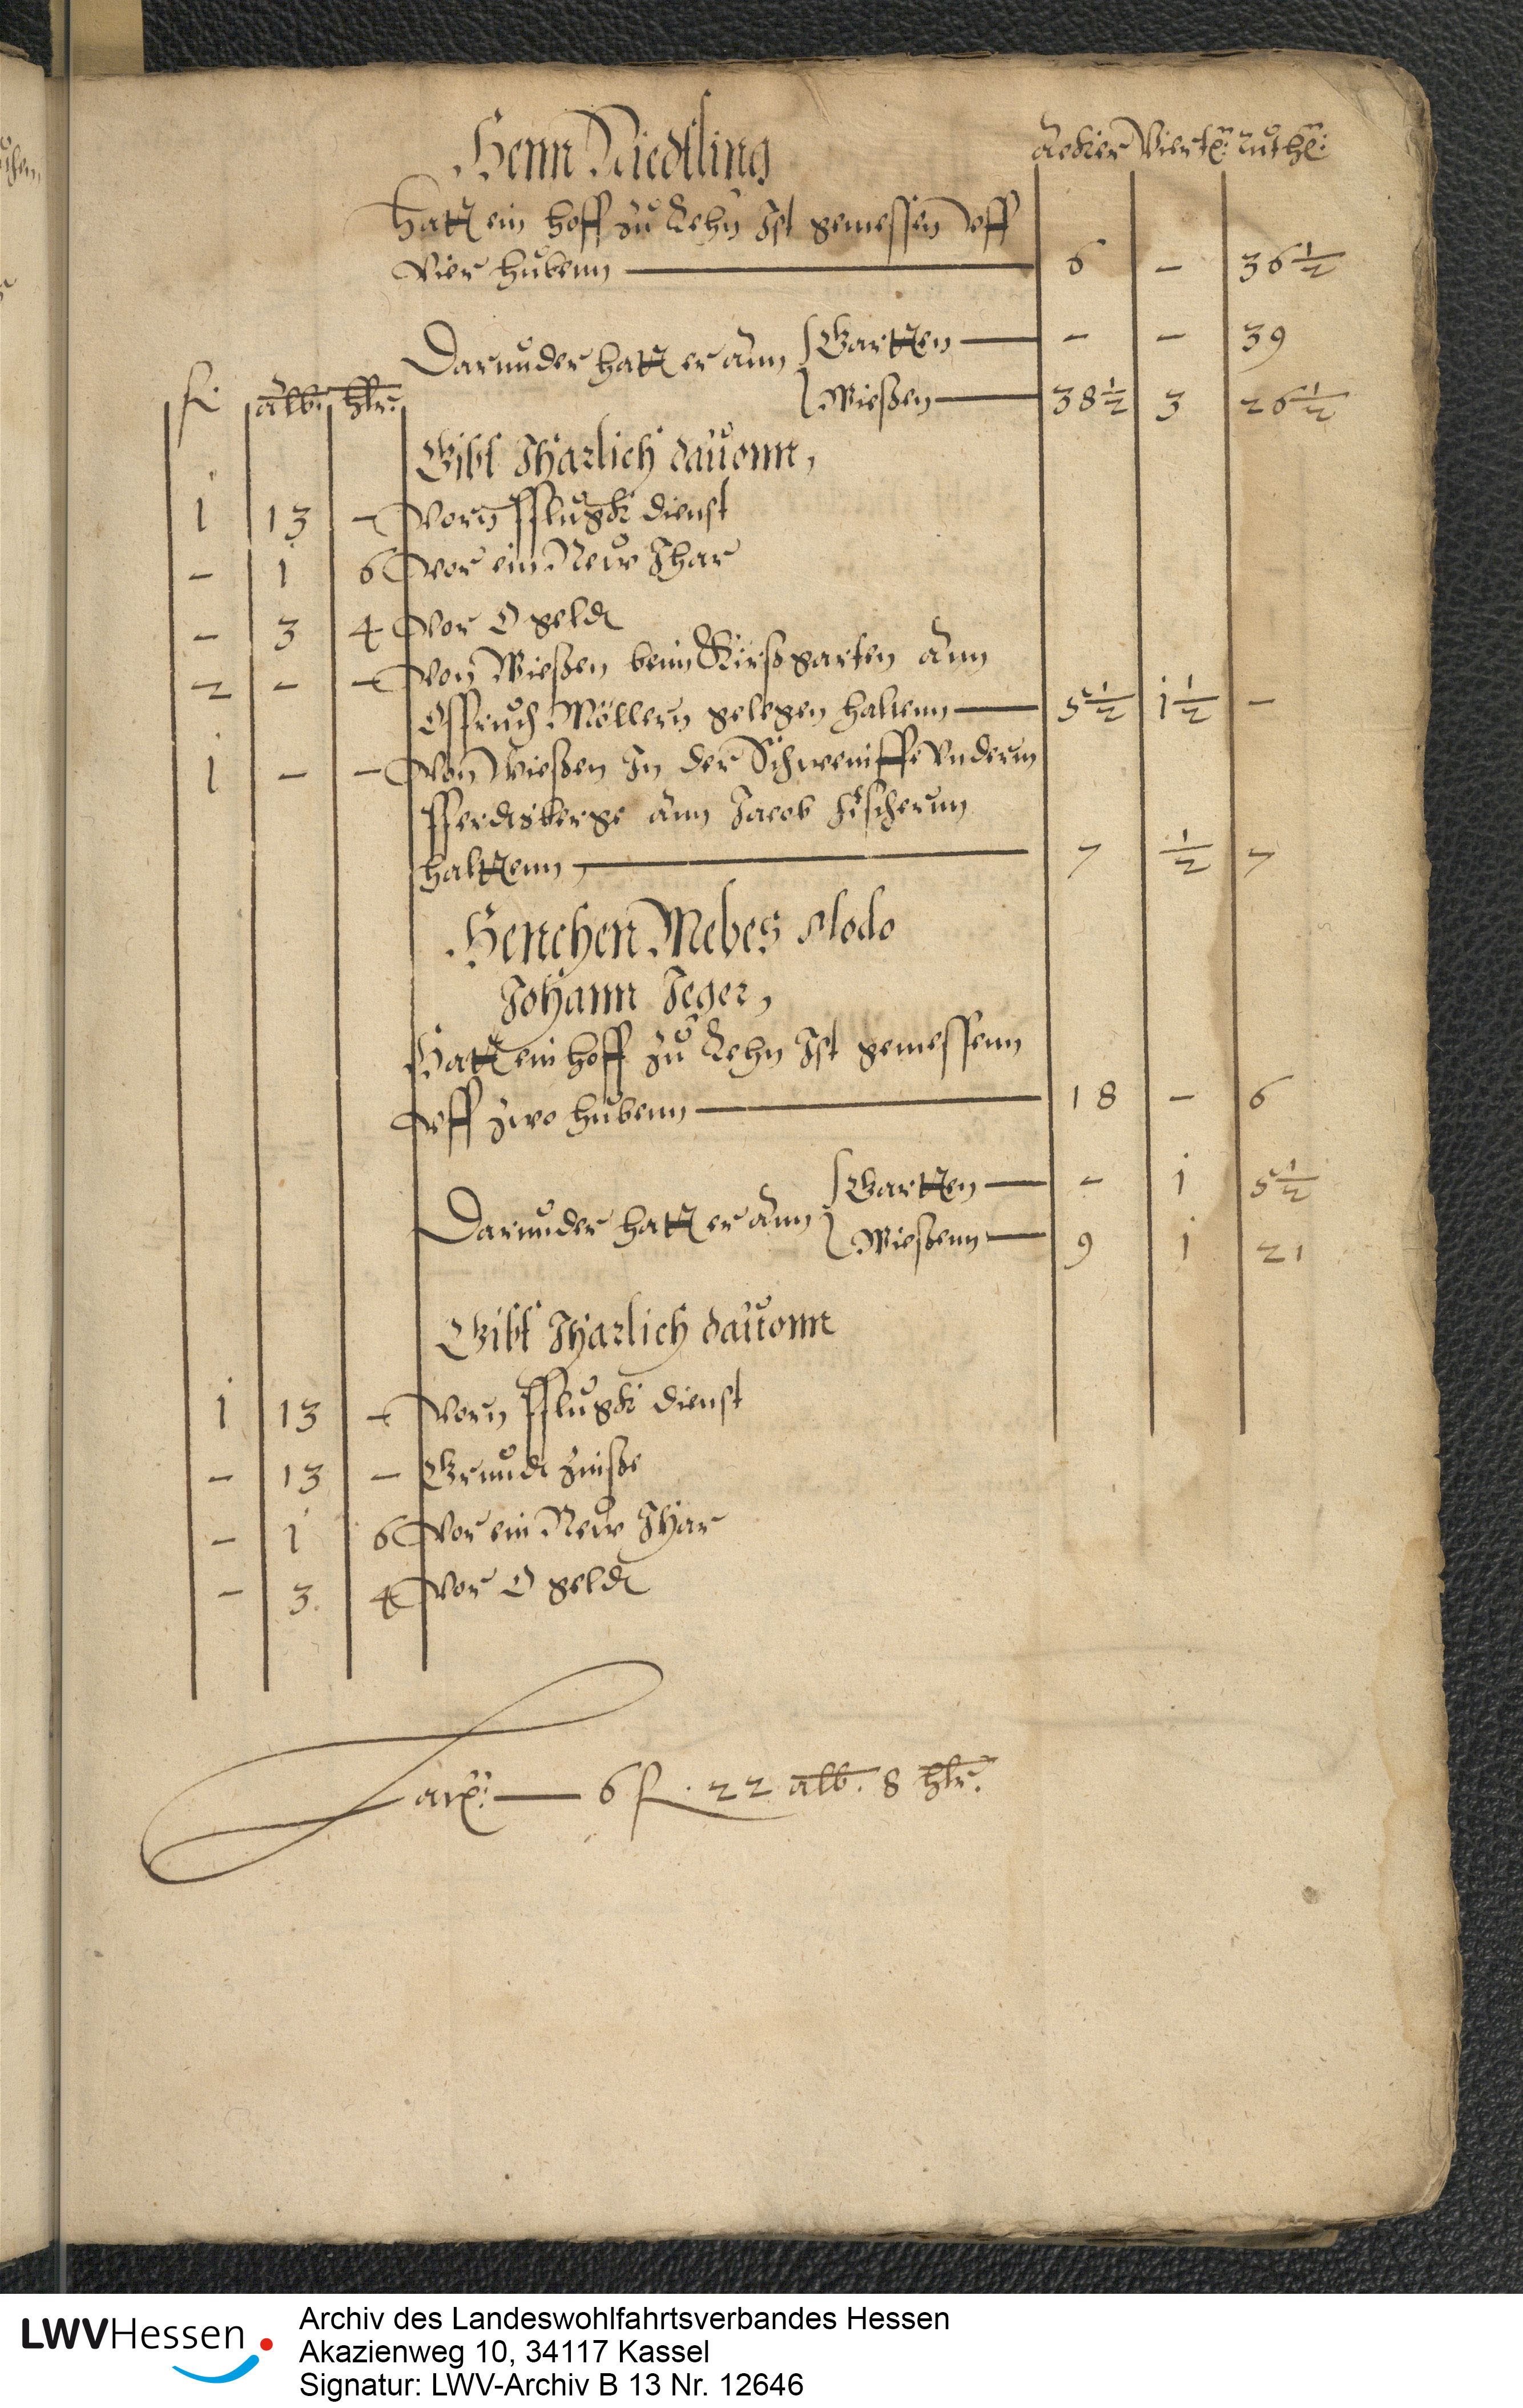 Henn Riedtling Acker Viert: Ruth:
Hatt ein hoff zu Lehn Ist gemessen vff
Vier hubenn — 6 - 36 1/2
Darunder hatt er ann
Gartten — - - 39
Wießen — 38 1/2 3 26 1/2
fl. alb. hlr.
Gibt Jharlich dauonn,
1 13 - Vorn Pflugk dienst
- 1 6 Vor ein New Jhar
- 3 4 Vor O geldt
2 - - Von Wießen beim Kirßgarten ann
Möllern gelegen haltenn — 5 1/2 1 1/2 -
1 - - Von Wießen In der Vnderm
ann Jacob Fischernn
halttenn, — 7 1/2 7
Henchen Mebes modo
Johann Jeger,
Hatt ein hoff zu Lehn Ist gemessenn
vff zwo hubenn — 18 - 6
Darunder hatt er ann
Gartten — - 1 5 1/2
Wießenn — 9 1 21
Gibt Jharlich dauonn
1 13 - Vorn Pflugk dienst
- 13 - Grundt zinße
- 1 6 Vor ein New Jhar
- 3 4 Vor O geldt
Lat: — 6 fl. 22 alb. 8 hlr.
LWVHessen
Archiv des Landeswohlfahrtsverbandes Hessen
Akazienweg 10, 34117 Kassel
Signatur: LWV-Archiv B 13 Nr. 12646